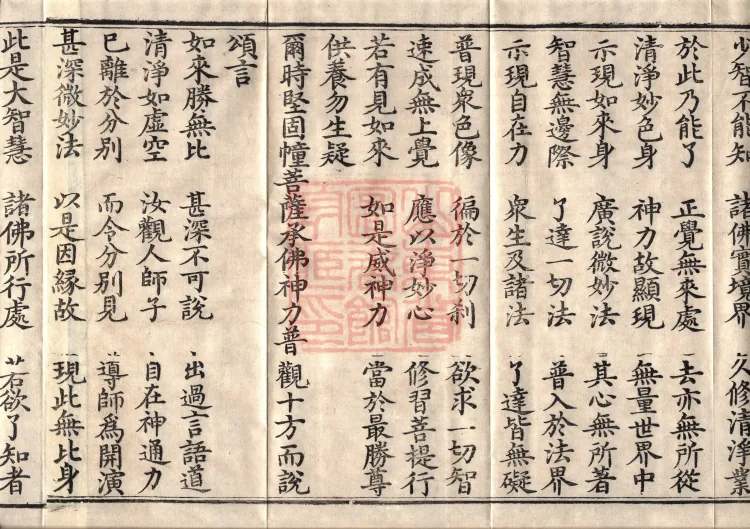 少智不能知　諸佛實境界　久修清淨業
於此乃能了　正覺無來處　去亦無所從
清淨妙色身　神力故顯現　無量世界中
示現如來身　廣說微妙法　其心無所著
智慧無邊際　了達一切法　普入於法界
示現自在力　衆生及諸法　了達皆無礙
普現衆色像　徧於一切刹　欲求一切智
速成無上覺　應以淨妙心　修習菩提行
若有見如來　如是威神力　當於最勝尊
供養勿生疑
爾時堅固幢菩薩承佛神力普觀十方而說
頌言
如來勝無比　甚深不可說　出過言語道
清淨如虛空　汝觀人師子　自在神通力
已離於分別　而令分別見　導師爲開演
甚深微妙法　以是因緣故　現此無比身
此是大智慧　諸佛所行處　若欲了知者